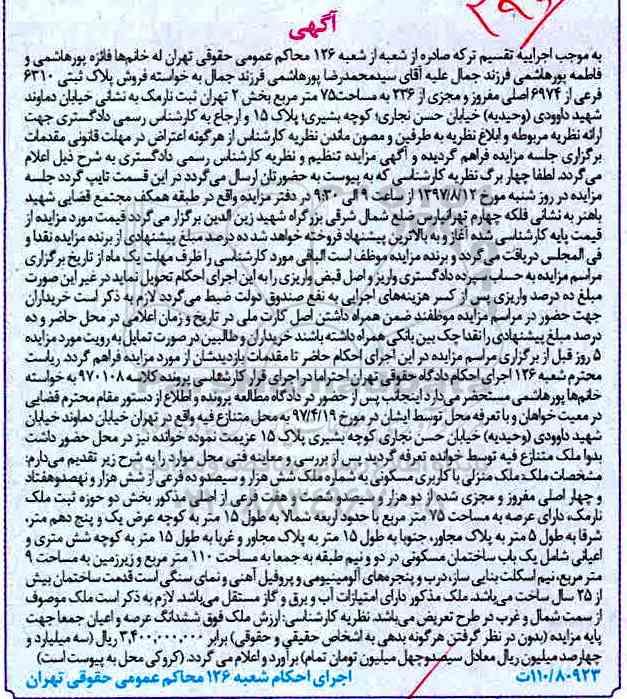 آگهی
به موجب اجراییه تقسیم ترکه صادره از شعبه از شعبه ۱۲۶ محاکم عمومی حقوقی تهران له خانم‌ها فائزه پورهاشمی و
فاطمه پورهاشمی فرزند جمال علیه آقای سیدمحمدرضا پورهاشمی فرزند جمال به خواسته فروش پلاک ثبتی ۶۳۱۰
فرعی از ۶۹۷۴ اصلی مفروز و مجزی از ۲۳۶ به مساحت۷۵ متر مربع بخش ۲ تهران ثبت نارمک به نشانی خیابان دماوند
شهید داوودی (وحیدیه) خیابان حسن نجاری؛ کوچه بشیری؛ پلاک ۱۵ و ارجاع به کارشناس رسمی دادگستری جهت
ارائه نظریه مربوطه و ابلاغ نظریه به طرفین و مصون ماندن نظریه کارشناس از هرگونه اعتراض در مهلت قانونی مقدمات
برگزاری جلسه مزایده فراهم گردیده و آگهی مزایده تنظیم و نظریه کارشناس رسمی دادگستری به شرح ذیل اعلام
می‌گردد. لطفا چهار برگ نظریه کارشناسی که به پیوست به حضورتان ارسال می‌گردد در این قسمت تایپ گردد جلسه
مزایده در روز شنبه مورخ ۱۳۹۷/۸/۱۲ از ساعت ۹ الی ۹:۳۰ در دفتر مزایده واقع در طبقه همکف مجتمع قضایی شهید
باهنر به نشانی فلکه چهارم تهرانپارس ضلع شمال شرقی بزرگراه شهید زین الدین برگزار می‌گردد قیمت مورد مزایده از
قیمت پایه کارشناسی شده آغاز و به بالاترین پیشنهاد فروخته خواهد شد ده درصد مبلغ پیشنهادی از برنده مزایده نقدا و
فی المجلس دریافت می‌گردد و برنده مزایده موظف است الباقی مورد کارشناسی را ظرف مهلت یک ماه از تاریخ برگزاری
مراسم مزایده به حساب سپرده دادگستری واریز و اصل قبض واریزی را به این اجرای احکام تحویل نماید در غیر این صورت
مبلغ ده درصد واریزی پس از کسر هزینه‌های اجرایی به نفع صندوق دولت ضبط می‌گردد لازم به ذکر است خریداران
جهت حضور در مراسم مزایده موظفند ضمن همراه داشتن اصل کارت ملی در تاریخ و زمان اعلامی در محل حاضر و ده
درصد مبلغ پیشنهادی را نقدا چک بین بانکی همراه داشته باشند خریداران و طالبین در صورت تمایل به رویت مورد مزایده
۵ روز قبل از برگزاری مراسم مزایده در این اجرای احکام حاضر تا مقدمات بازدیدشان از مورد مزایده فراهم گردد. ریاست
محترم شعبه ۱۲۶ اجرای احکام دادگاه حقوقی تهران احتراما در اجرای قرار کارشناسی پرونده کلاسه ۹۷۰۱۰۸ به خواسته
خانم‌ها پورهاشمی مستحضر می‌دارد اینجانب پس از حضور در دادگاه مطالعه پرونده و اطلاع از دستور مقام محترم قضایی
در معیت خواهان و با تعرفه محل توسط ایشان در مورخ ۹۷/۴/۱۹ به محل متنازع فیه واقع در تهران خیابان دماوند خیابان
شهید داوودی (وحیدیه) خیابان حسن نجاری کوچه بشیری پلاک ۱۵ عزیمت نموده خوانده نیز در محل حضور داشت
بدوا ملک متنازع فیه توسط خوانده تعرفه گردید پس از بررسی و معاینه فنی محل موارد را به شرح زیر تقدیم می‌دارم:
مشخصات ملک: ملک منزلی با کاربری مسکونی به شماره ملک شش هزار و سیصدو ده فرعی از شش هزار و نهصدوهفتاد
و چهار اصلی مفروز و مجزی شده از دو هزار و سیصدو شصت و هفت فرعی از اصلی مذکور بخش دو حوزه ثبت ملک
نارمک، دارای عرصه به مساحت ۷۵ متر مربع با حدود اربعه شمالا به طول ۱۵ متر به کوچه عرض یک و پنج دهم متر،
شرقا به طول ۵ متر به پلاک مجاور، جنوبا به طول ۱۵ متر به پلاک مجاور و غربا به طول ۱۵ متر به کوچه شش متری و
اعیانی شامل یک باب ساختمان مسکونی در دو و نیم طبقه به جمعا به مساحت ۱۱۰ متر مربع و زیرزمین به مساحت ۹
متر مربع، نیم اسکلت بنایی ساز، درب و پنجره‌های آلومینیومی و پروفیل آهنی و نمای سنگی است قدمت ساختمان بیش
از ۲۵ سال ساخت می‌باشد. ملک مذکور دارای امتیازات آب و برق و گاز مستقل می‌باشد. لازم به ذکر است ملک موصوف
از سمت شمال و غرب در طرح تعریض می‌باشد. نظریه کارشناسی: ارزش ملک فوق ششدانگ عرصه و اعیان جمعا جهت
پایه مزایده (بدون در نظر گرفتن هرگونه بدهی به اشخاص حقیقی و حقوقی) برابر ۳,۴۰۰,۰۰۰,۰۰۰ ریال (سه میلیارد و
چهارصد میلیون ریال معادل سیصدوچهل میلیون تومان تمام) برآورد و اعلام می گردد. (کروکی محل به پیوست است)
۱۱۰/۸۰۹۲۳ت اجرای احکام شعبه ۱۲۶ محاکم عمومی حقوقی تهران